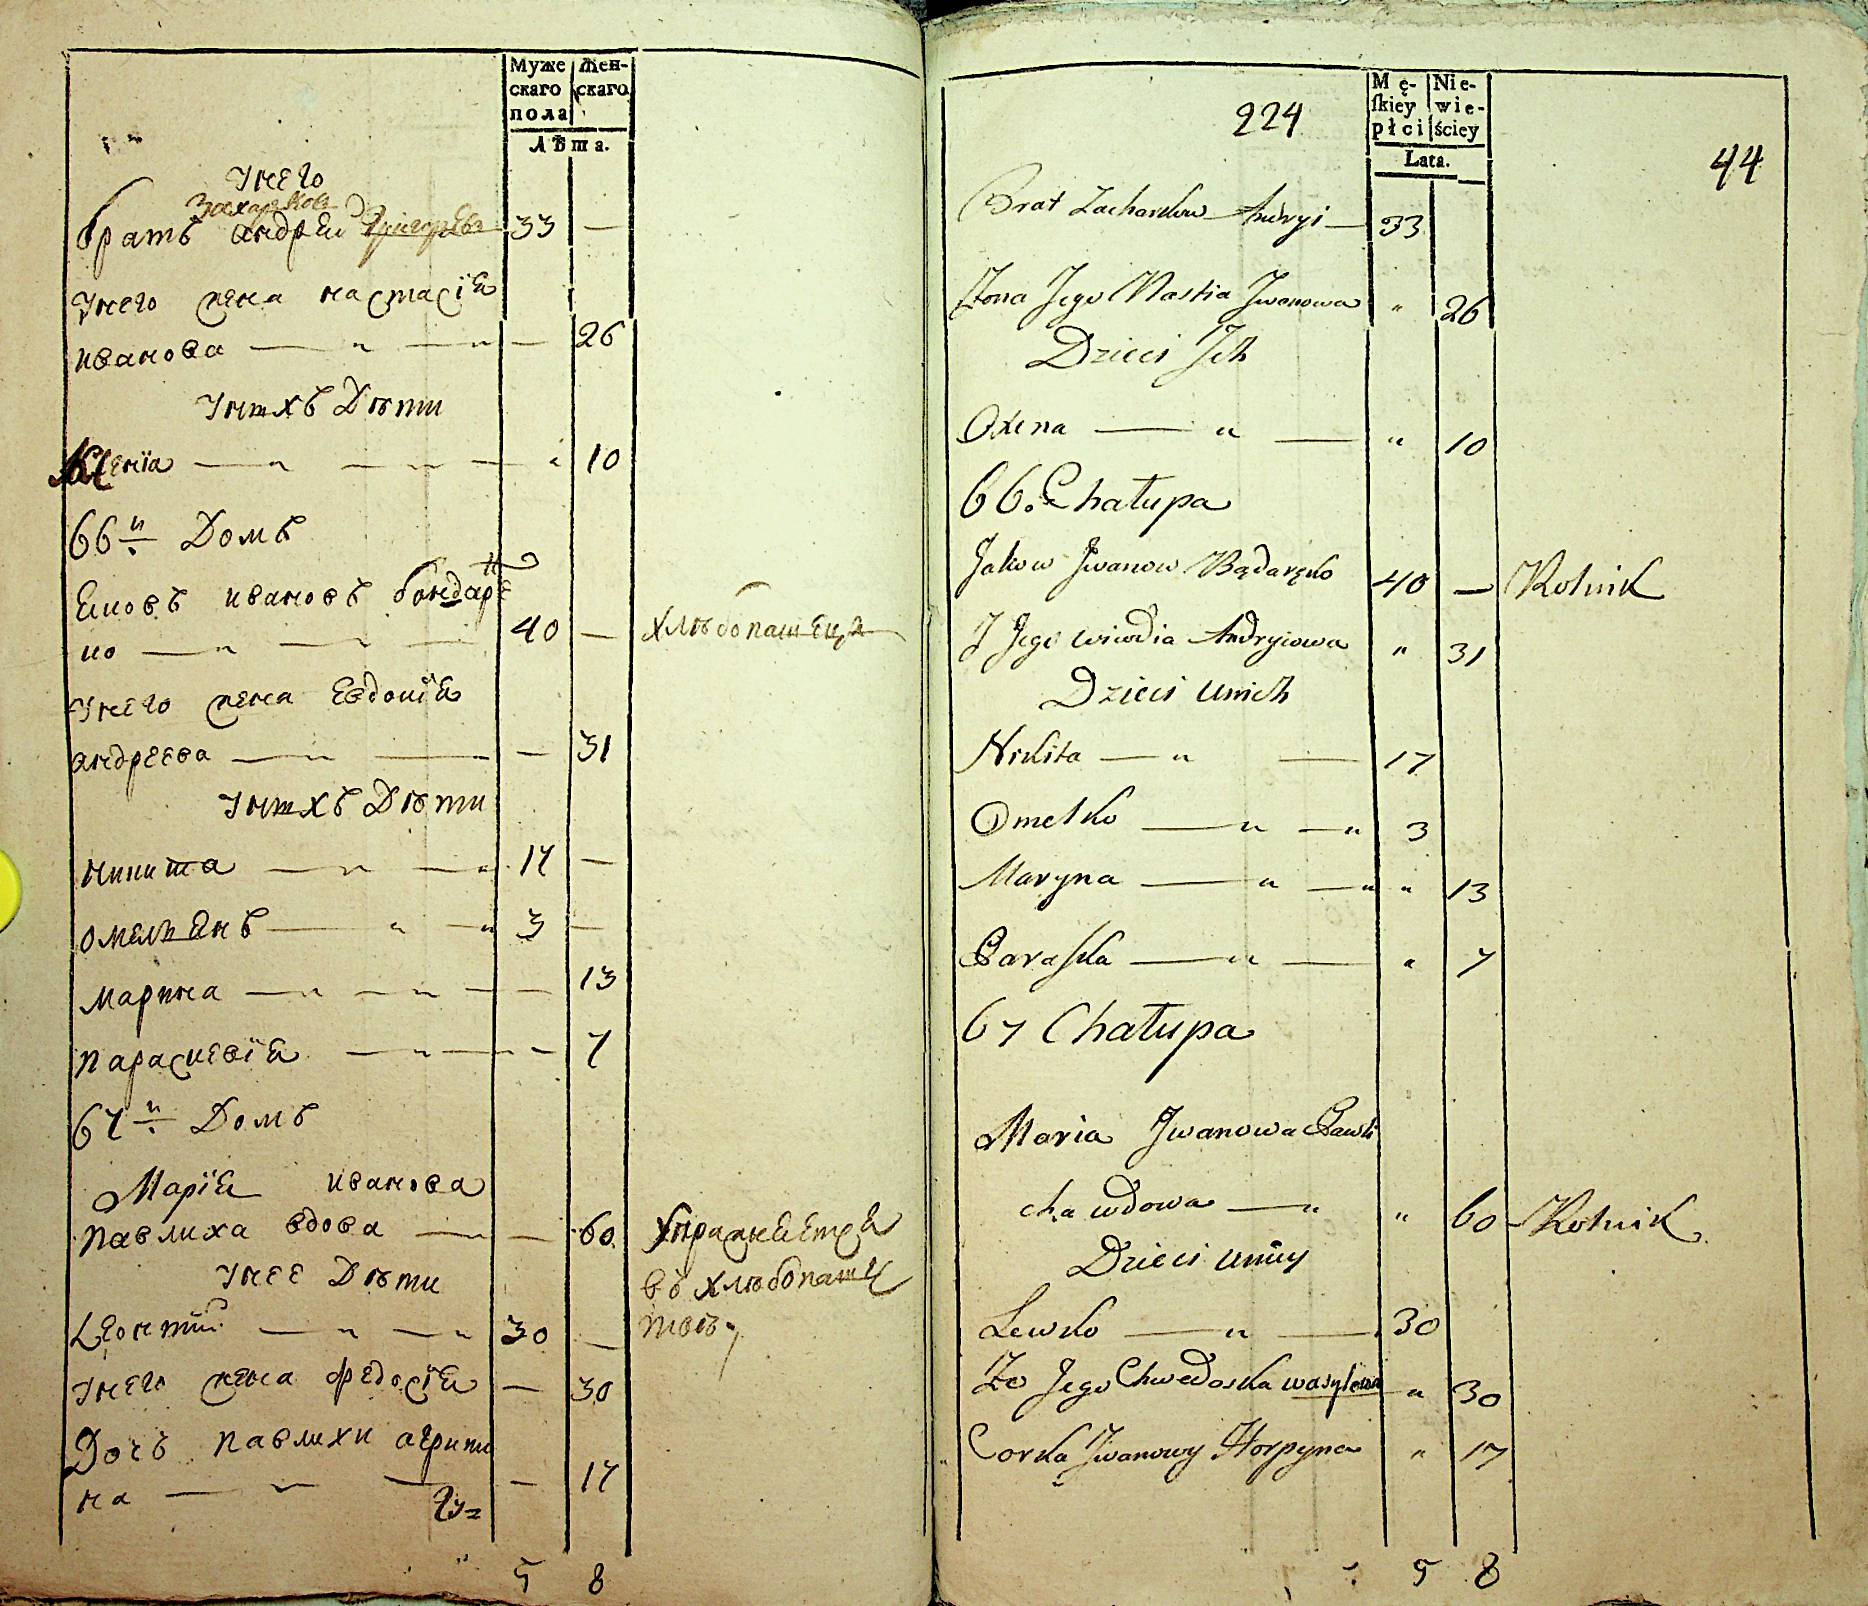 Муже
скаго
пола
Жен-
скаго
Лѣта.
Унего
Захарков
братъ андрей Григорьевъ 33 —
Унего жена настасія
иванова — 26
Унихъ Дѣти
Ксенія — 10
66й Домъ
Яковъ ивановъ бондарен
ко — 40 — хлѣбопашецъ
Унего жена Евдокія
андреева — 31
Унихъ Дѣти
никита — 17 —
омельянъ — 3 —
марина — 13
параскевія — 7
67й Домъ
Марія иванова
павлиха вдова — 60 упражняется
въ хлѣбопаше
твѣ
Унее Дѣти
Леонтій — 30 —
Унего жена федосія — 30
Дочь павлихи агрипи
на — 17
5 8
224
44
Mę-
skiey
płci
Nie-
wie-
ściey
Lata.
Brat Zacharkow Andryi — 33
Żona Jego Nastia Jwanowa " 26
Dzieci Jch
Oxena — " — " 10
66. Chałupa
Jakow Jwanow Bądaręko 40 — Rolnik
Ż Jego Wiwdia Andryiowa " 31
Dzieci unich
Nikita — " — 17
Omelko — " — " 3
Maryna — " — " " 13
Paraska — " — " 7
67 Chałupa
Maria Jwanowa Pawli
cha wdowa — " " 60 Rolnik
Dzieci uniey
Lewko — " — 30
Żo Jego Chwedoska wasylowa " 30
Corka Jwanowy Horpyna " 17
5 8